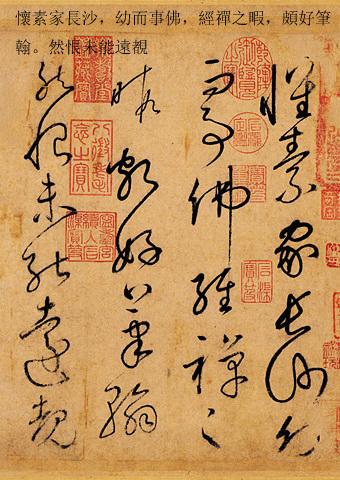 懷素家長沙，幼而事佛，經禪之暇，頗好筆
翰。然恨未能遠覩
懷素家長沙幼
而事佛經禪之
暇頗好筆翰
然恨未能遠覩